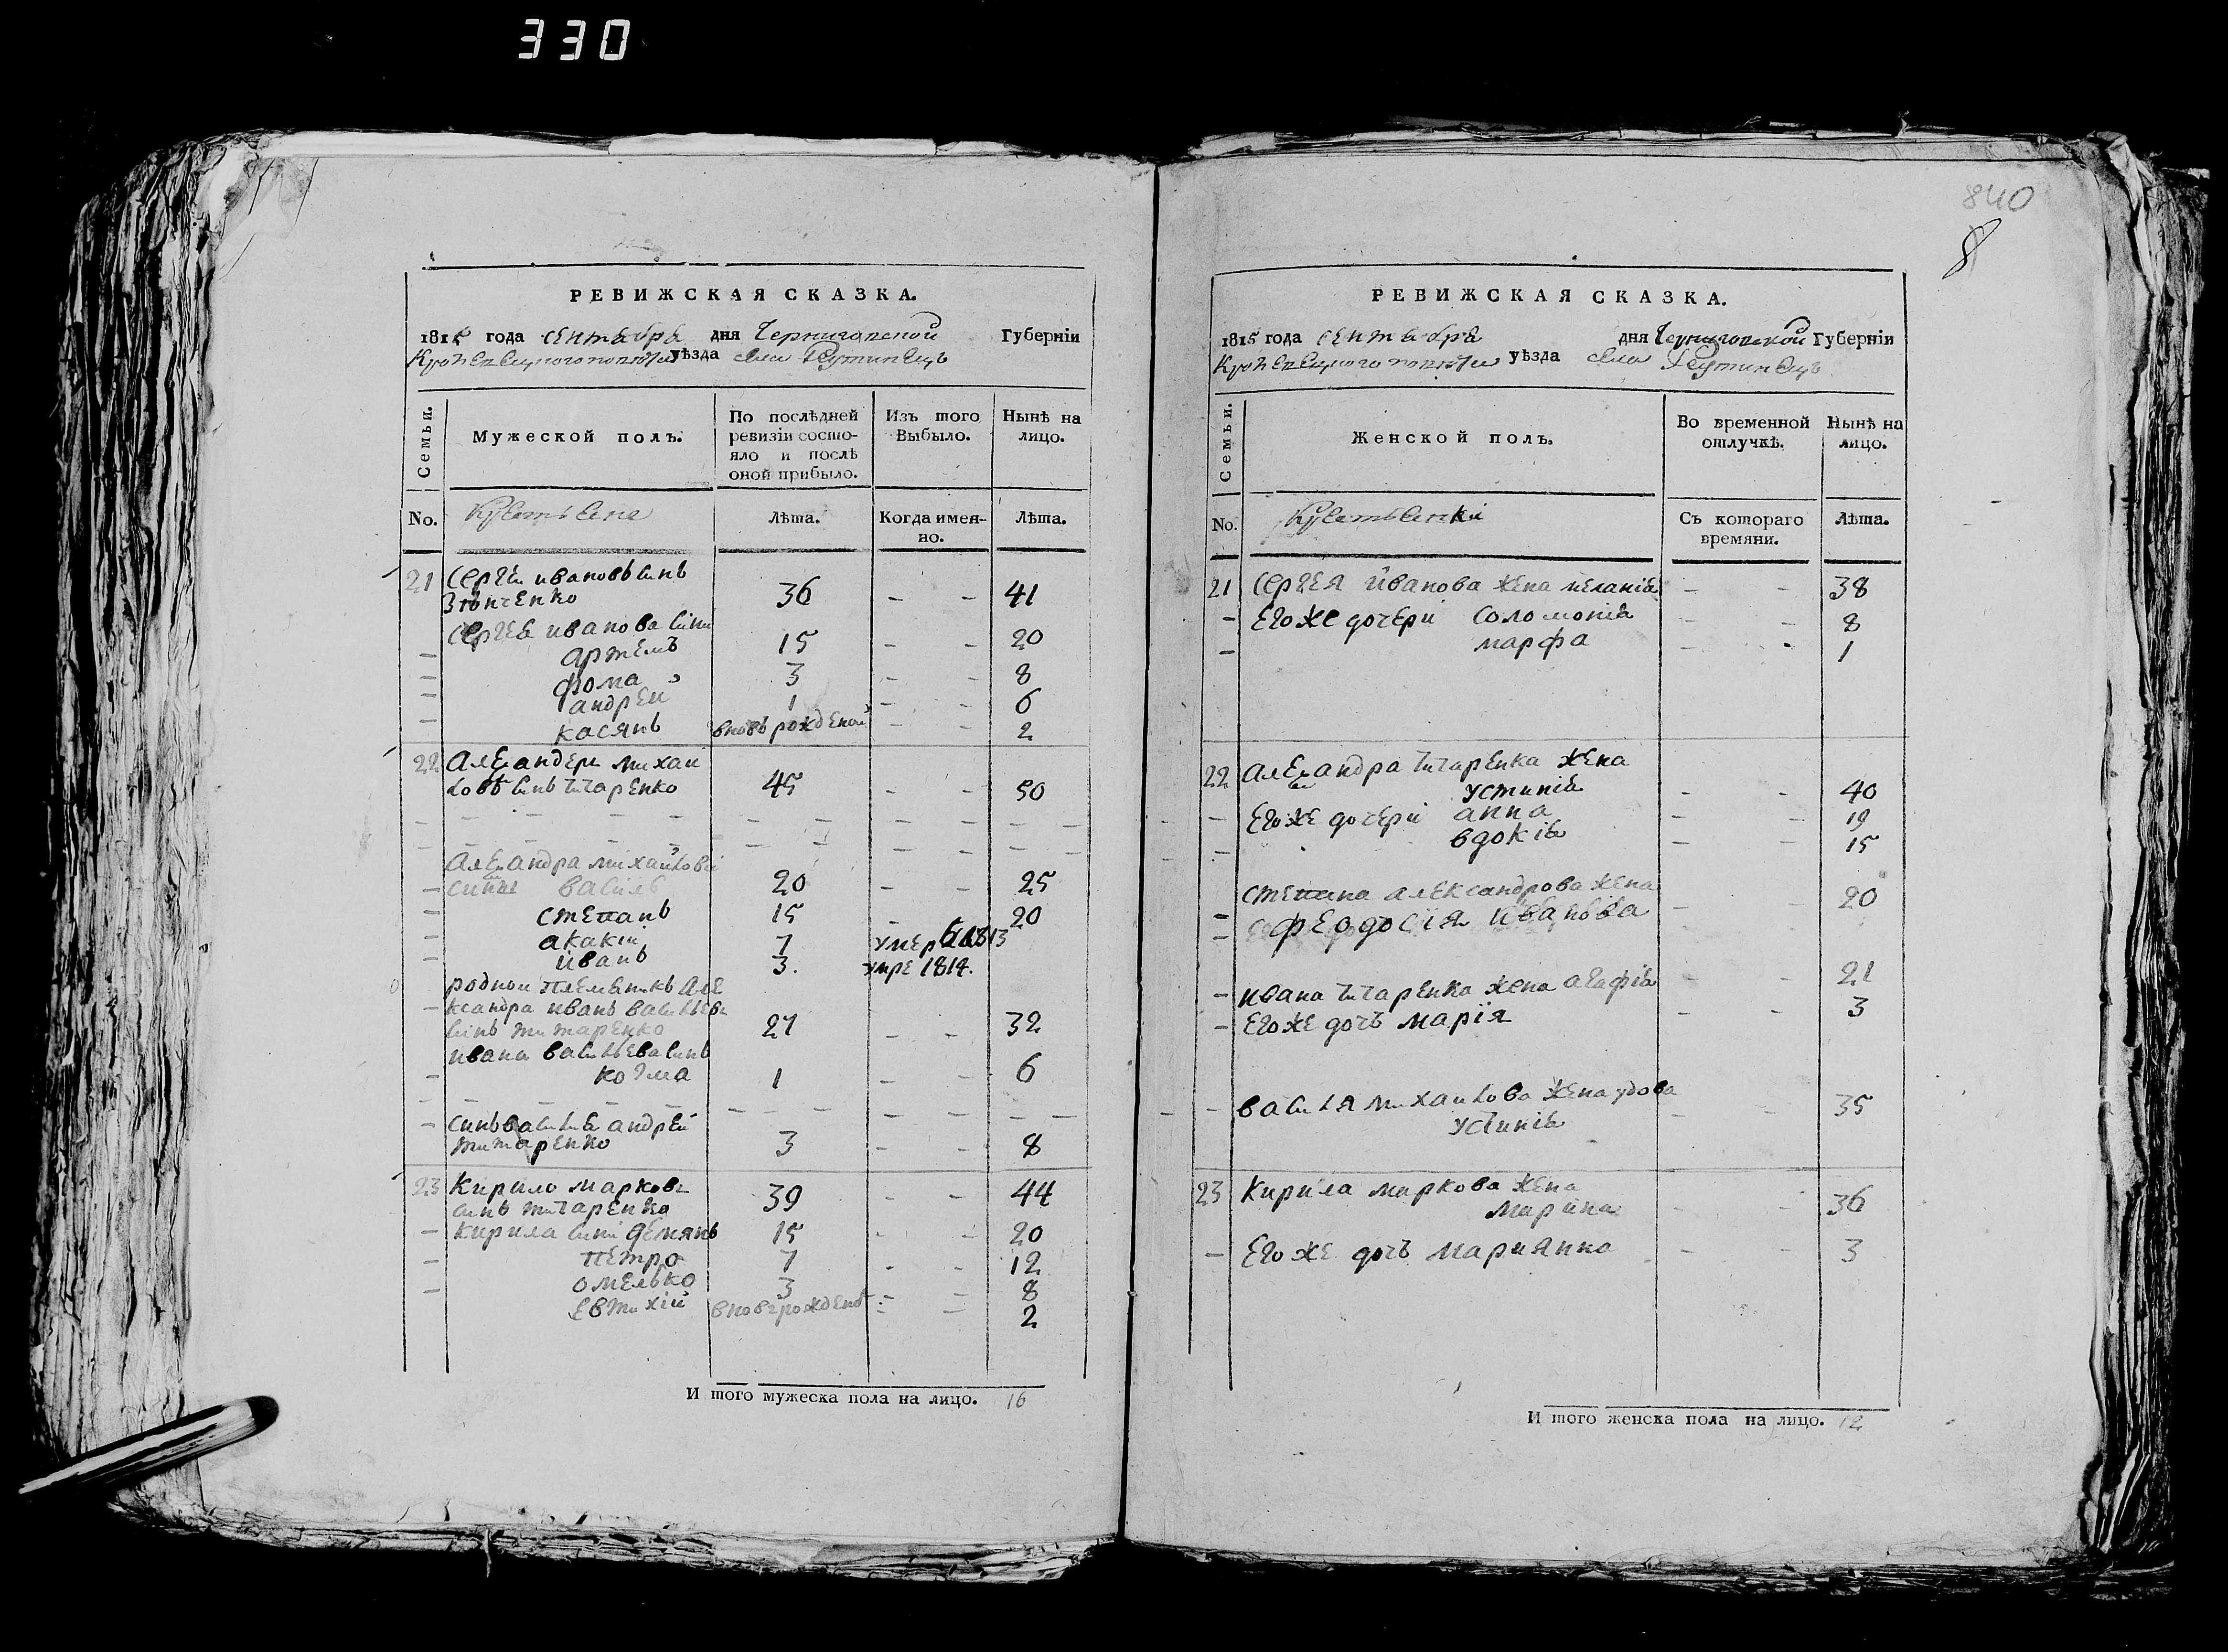 330
840
8
РЕВИЖСКАЯ СКАЗКА.
1815 года сентября дня Черниговской Губерніи
Кролевецкого повѣта уѣзда села Реутинецъ
Семьи.
Мужеской полъ.
По послѣдней ревизіи состо-
яло и послѣ
оной прибыло.
Изъ того
Выбыло.
Нынѣ на
лицо.
No.
Лѣта.
Когда имен-
но.
Лѣта.
21 Сергѣй ивановъ синъ
36 - - 41
Сергѣя иванова сини
артемъ 15 - - 20
фома 3 - - 8
андрей 1 - - 6
касянъ вновь рожденой - - 2
22 Александеръ михаи
ловъ синъ титаренко 45 - - 50
Александра михайлова
сины василь 20 - 25
степанъ 15 - 20
акакій 7 умеръ 1813
иванъ 3. умре 1814.
родной племѣникъ Але
ксандра иванъ васильевъ
синъ титаренко 27 - - 32
ивана васильева синъ
козма 1 - - 6
синъ василія андрей
титаренко 3 - - 8
23 Кирило марковъ
синъ титаренко 39 - - 44
- Кирила сини демянъ 15 - - 20
- петро 7 - - 12
- омелько 3 - - 8
евтихій вновъ рожденъ - - 2
И того мужеска пола на лицо. 16
РЕВИЖСКАЯ СКАЗКА.
1815 года сентября дня Черниговской Губерніи
Кролевецкого повѣта уѣзда села Реутинецъ
Семьи.
Женской полъ.
Во временной
отлучкѣ.
Нынѣ на
лицо.
No.
Съ котораго
времяни.
Лѣта.
21 Сергея иванова жена меланія - - 38
- Его же дочери соломонія - - 8
- марфа - - 1
22 Александра титаренка жена
устинія - - 40
- Его же дочери анна - - 19
- вдокія - - 15
степана александрова жена 20
- феодосія иванова - -
- ивана титаренка жена агафія - - 21
- Его же дочъ марія - - 3
- василя михаилова жена удова 35
устинія
23 Кирила маркова жена
марина - - 36
- Его же дочъ мариянна - - 3
И того женска пола на лицо. 12